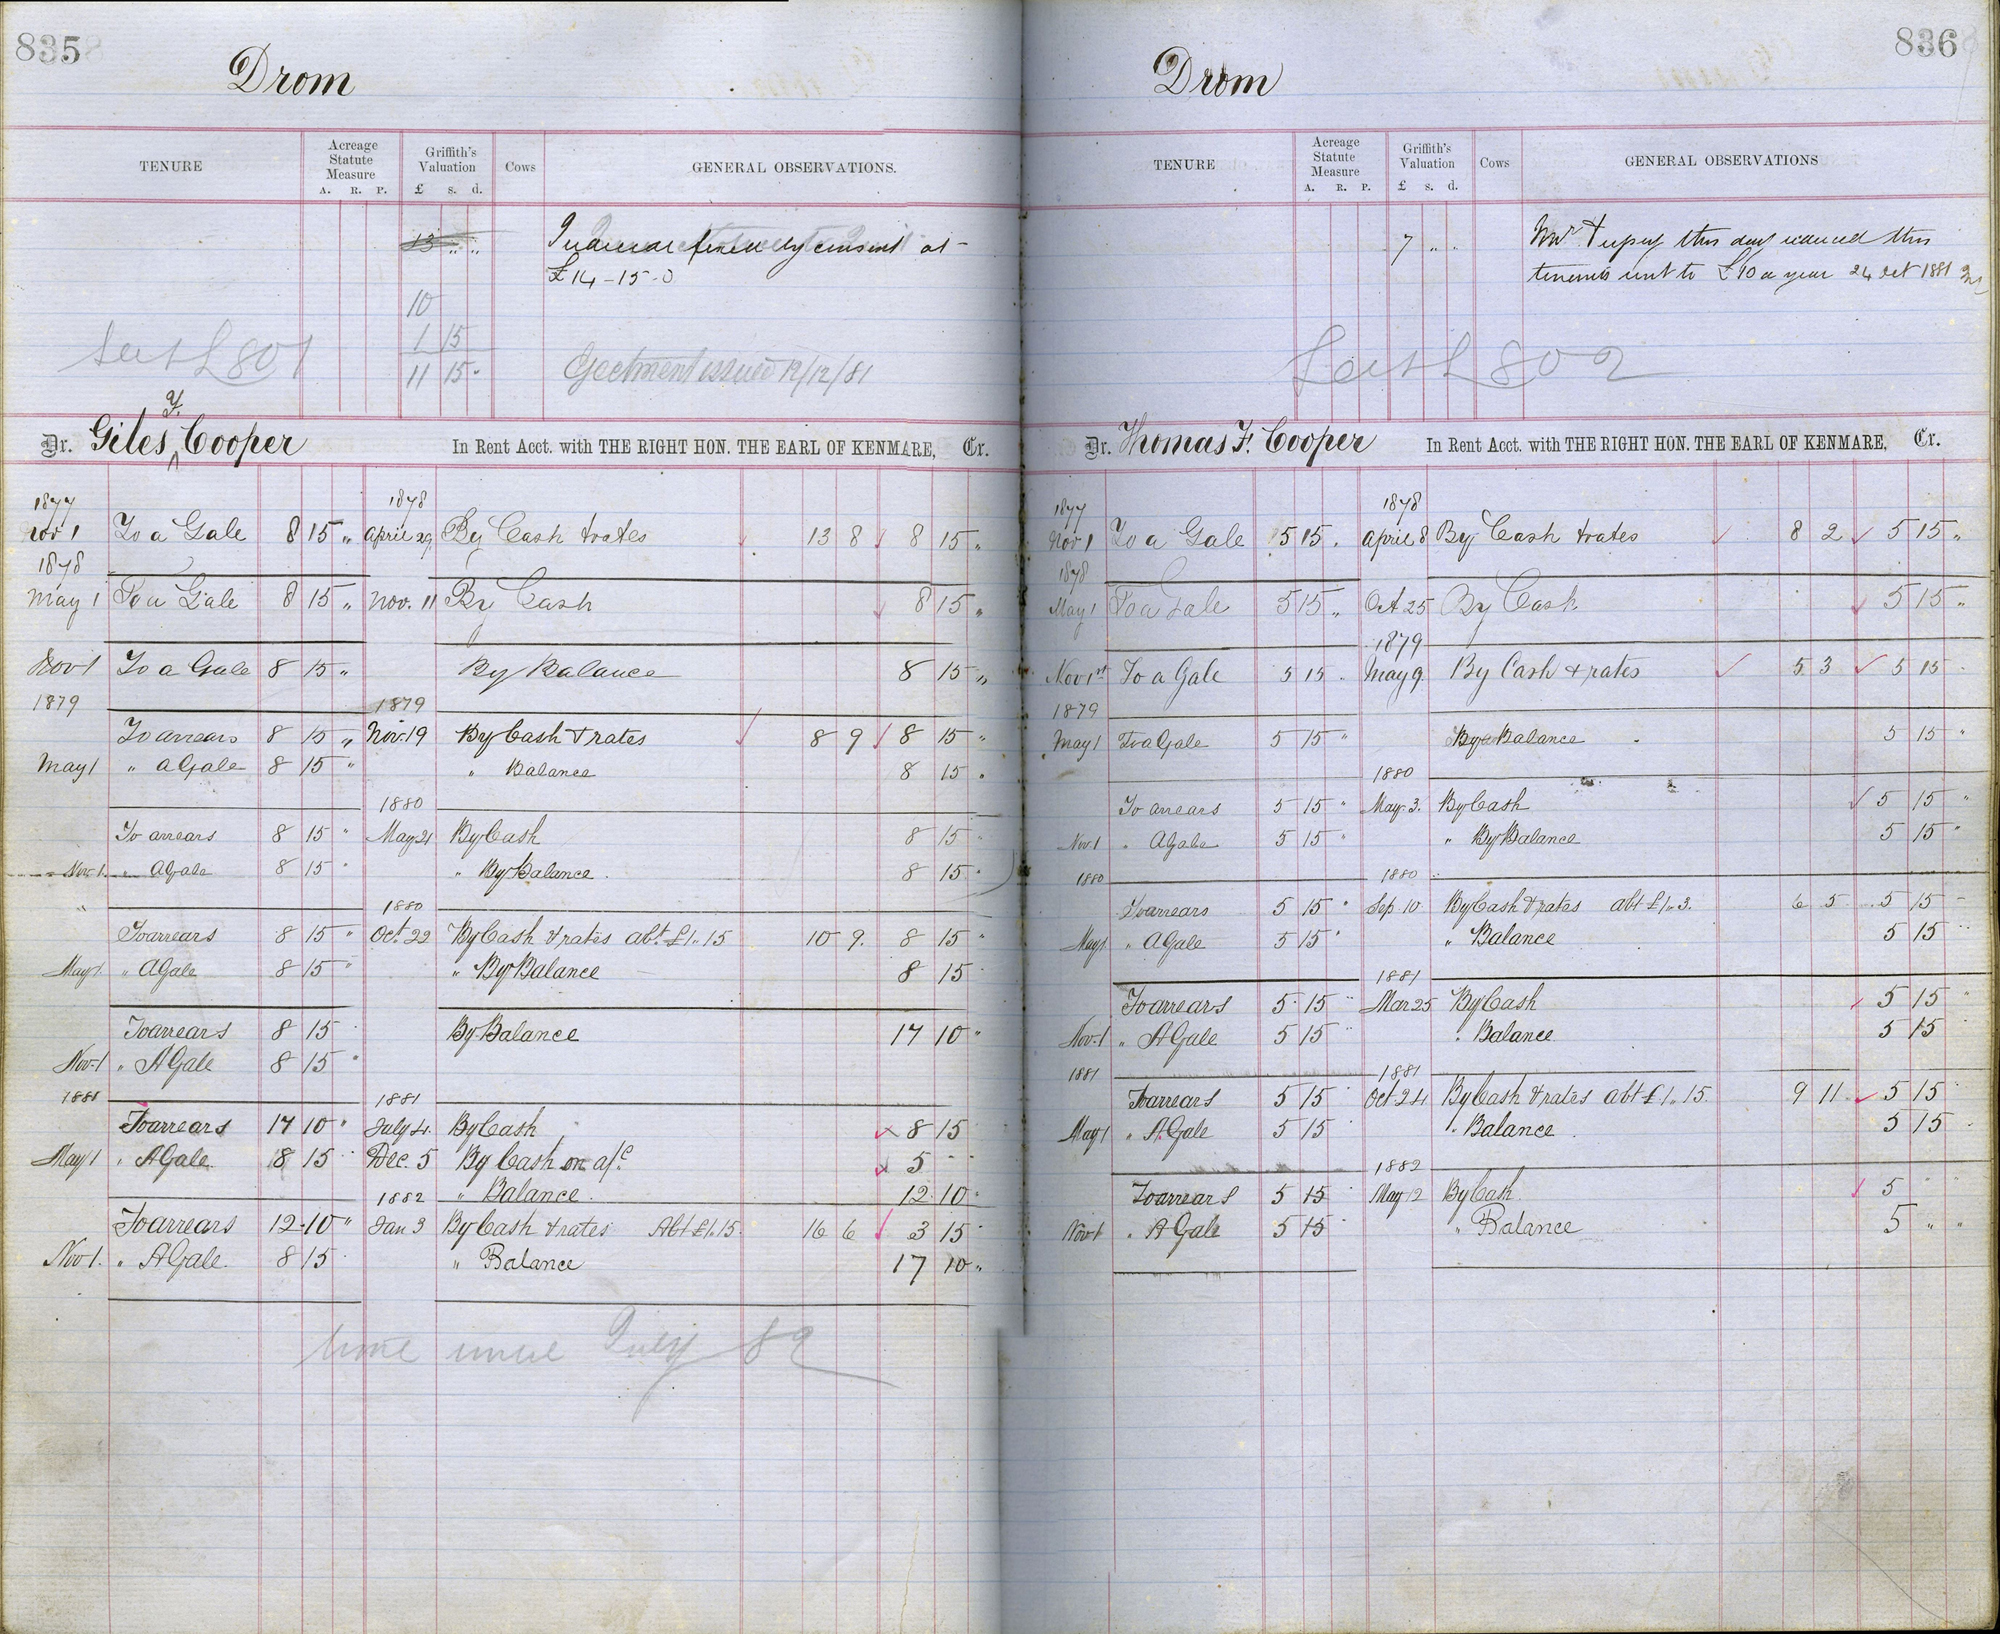 835
Drom
TENURE
Acreage
Statute
Measure
A. R. P.
Griffith's
Valuation
£ s. d.
Cows
GENERAL OBSERVATIONS.
13 " "
Judicial fixed by consent at
£14-15-0
10
1 15
11 15
£801
Ejectment issued 12/12/81
Dr. Giles F. Cooper In Rent Acct. with THE RIGHT HON. THE EARL OF KENMARE, Cr.
1877 1878
Nov 1 To a Gale 8 15 " April 29 By Cash & rates 13 8 8 15 "
1878
May 1 To a Gale 8 15 " Nov. 11 By Cash 8 15 "
Nov 1 To a Gale 8 15 " By Balance 8 15 "
1879 1879
To arrears 8 15 " Nov. 19 By Cash & rates 8 9 8 15 "
May 1 " a Gale 8 15 " " Balance 8 15 "
1880
To arrears 8 15 " May 21 By Cash 8 15 "
Nov. 1 " A Gale 8 15 " " By Balance 8 15 "
1880
To arrears 8 15 " Oct. 22 By Cash & rates abt. £1..15 10 9. 8 15 "
May 1 " A Gale 8 15 " " By Balance 8 15
To arrears 8 15 By Balance 17 10 "
Nov. 1 " A Gale 8 15 "
1881 1881
To arrears 17 10 " July 4. By Cash 8 15
May 1 " A Gale 8 15 " Dec. 5 By Cash on a/c 5 " "
1882 " Balance 12 10 "
To arrears 12 10 " Jan 3 By Cash & rates Abt £1.15. 16 6 3 15
Nov 1. " A Gale. 8 15 " Balance 17 10 "
time until July 82
836
Drom
TENURE
Acreage
Statute
Measure
A. R. P.
Griffith's
Valuation
£ s. d.
Cows
GENERAL OBSERVATIONS
7 " "
this day reduced this
tenants rent to £10 a year 24 Oct 1881
£802
Dr. Thomas F. Cooper In Rent Acct. with THE RIGHT HON. THE EARL OF KENMARE, Cr.
1877 1878
Nov 1 To a Gale 5 15 " April 8 By Cash & rates 8 2 5 15 "
1878
May 1 To a Gale 5 15 " Oct 25 By Cash 5 15 "
1879
Nov 1st To a Gale 5 15 " May 9. By Cash & rates 5 3 5 15
1879
May 1 To a Gale 5 15 " By Balance 5 15 "
1880
To arrears 5 15 " May 3. By Cash 5 15 "
Nov. 1 " A Gale 5 15 " " By Balance 5 15 "
1880 1880
To arrears 5 15 " Sep. 10 By Cash & rates abt £1..3. 6 5 5 15
May 1 " A Gale 5 15 " " Balance 5 15
1881
To arrears 5 15 " Mar 25 By Cash 5 15 "
Nov. 1 " A Gale 5 15 " " Balance 5 15
1881 1881
To arrears 5 15 Oct 24 By Cash & rates abt £1..15. 9 11 5 15
May 1 " A Gale 5 15 " Balance 5 15
1882
To arrears 5 15 May 12 By Cash 5 " "
Nov 1 " A Gale 5 15 " Balance 5 " "